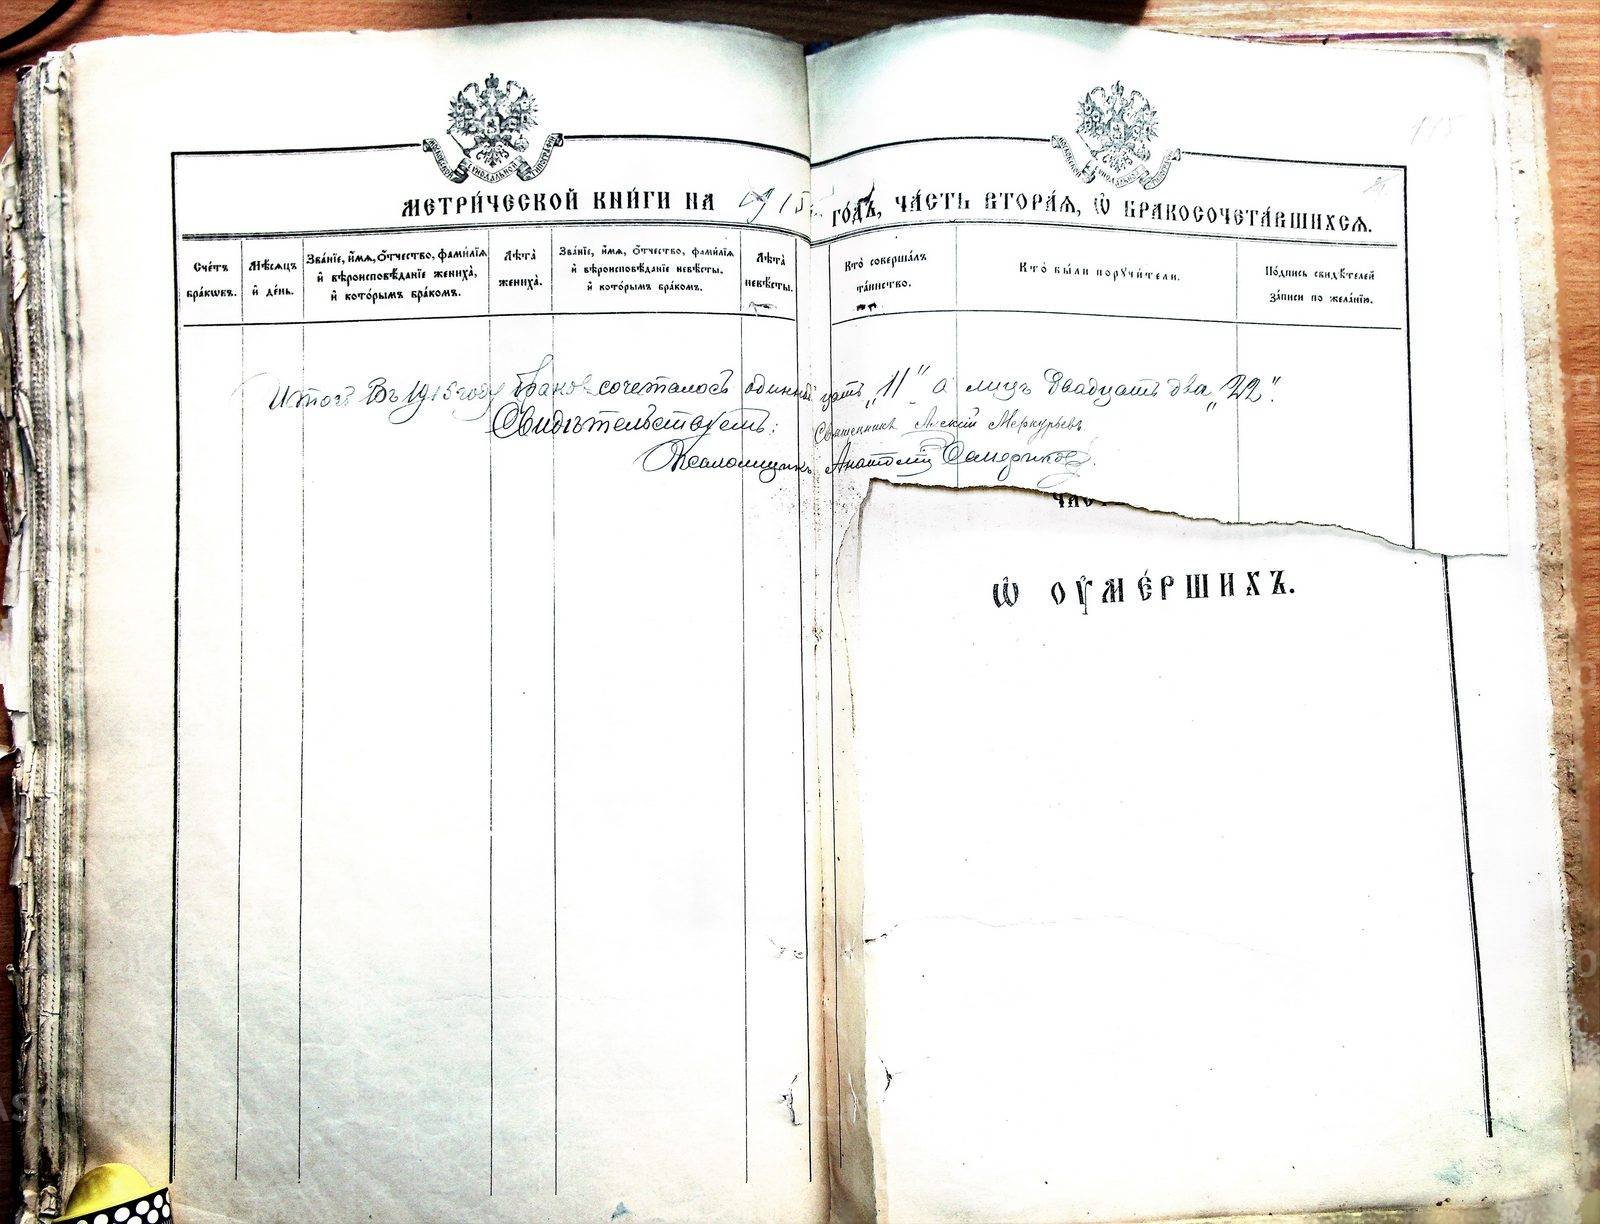 МОСКОВСКОЙ СѴНОДАЛЬНОЙ ТИПОГРАФІИ
МЕТРИ́ЧЕСКОЙ КНИ́ГИ НА 1915 ГО́ДЪ, ЧА́СТЬ ВТОРА́Я, Ѽ БРАКОСОЧЕТА́ВШИХСЯ.
Сче́тъ бра́кѡвъ.
Мѣ́сяцъ и҆ де́нь.
Зва́нїе, и҆́мя, ѻ҆́тчество, фами́лїя и҆ вѣроисповѣ́данїе жениха̀, и҆ кото́рымъ бра́комъ.
Лѣ́та жениха̀.
Зва́нїе, и҆́мя, ѻ҆́тчество, фами́лїя и҆ вѣроисповѣ́данїе невѣ́сты, и҆ кото́рымъ бра́комъ.
Лѣ́та невѣ́сты.
Кто̀ соверша́лъ та́инство.
Кто̀ бы́ли порꙋчи́тели.
По́дпись свидѣ́телей за́писи по жела́нїю.
Итого Въ 1915 году браковъ сочеталось одиннадцать „11“ а лицъ двадцать два „22“.
Свидѣтельствуетъ: Священникъ Алексій Меркурьевъ
Псаломщикъ Анатолій
ЧАС
Ѽ ОУ҆МЕ́РШИХЪ.